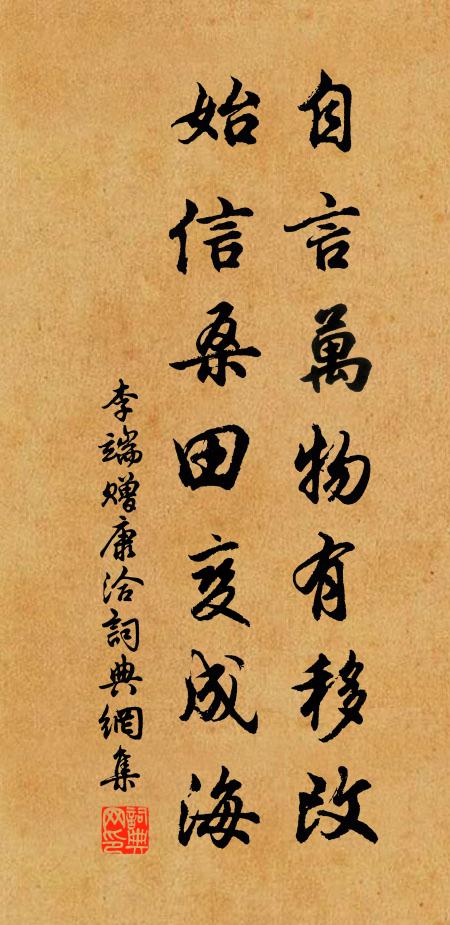 自言萬物有移改
始信桑田变成海
李端贈康洽詞典網集
詞典網印